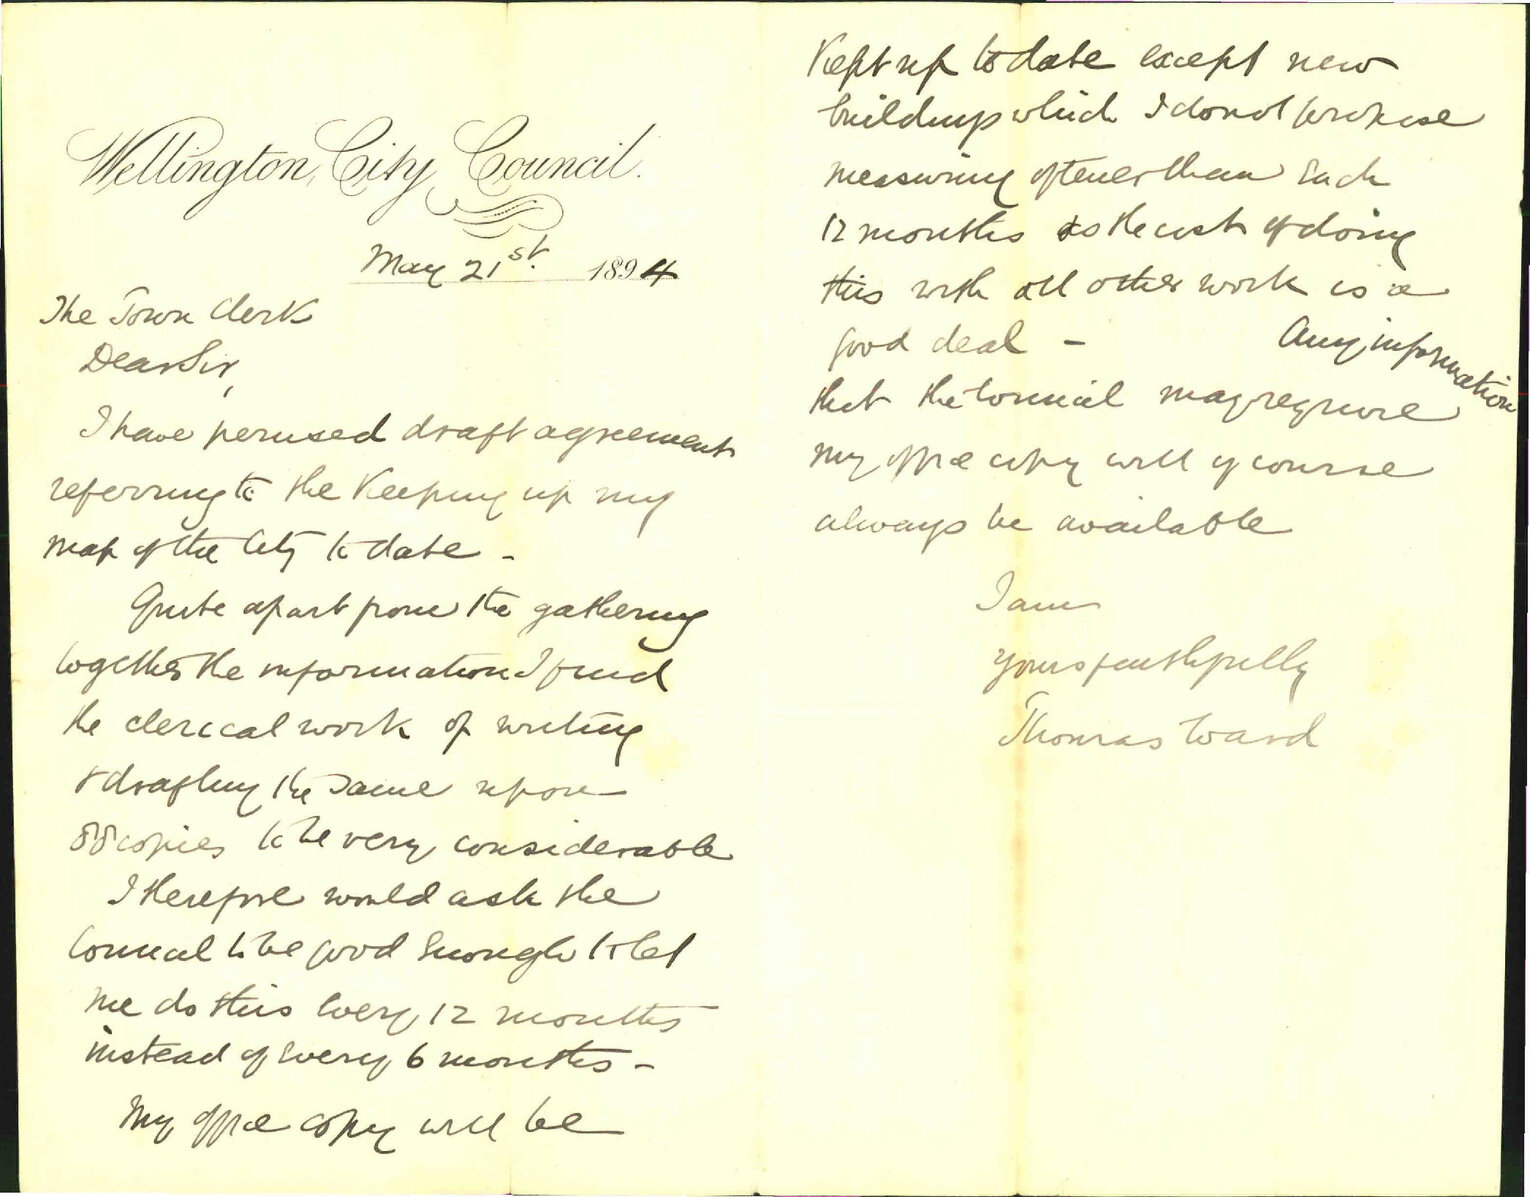 Wellington City Council.
May 21st. 1894
The Town Clerk
Dear Sir,
I have perused draft agreement
referring to the Keeping up my
map of the City to date -
Quite apart from the gathering
together the information I find
the clerical work of writing
& drafting the same upon
88 copies to be very considerable
I therefore would ask the
Council to be good Enough to let
me do this Every 12 months
instead of Every 6 months -
My office copy will be
Kept up to date except new
buildings which I do not propose
measuring oftener than Each
12 months as the cost of doing
this with all other work is a
good deal - Any information
that the Council may require
my office copy will of course
always be available
I am
Yours faithfully
Thomas Ward